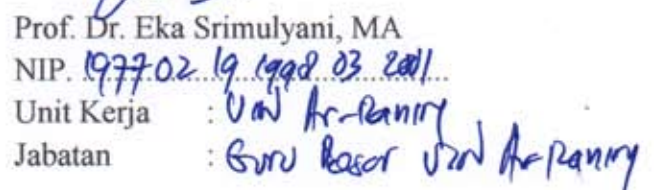 Prof. Dr. Eka Srimulyani, MA
NIP. 197702 19 1998 03 2001
Unit Kerja : UIN Ar-Raniry
Jabatan : Guru Besar UIN Ar-Raniry